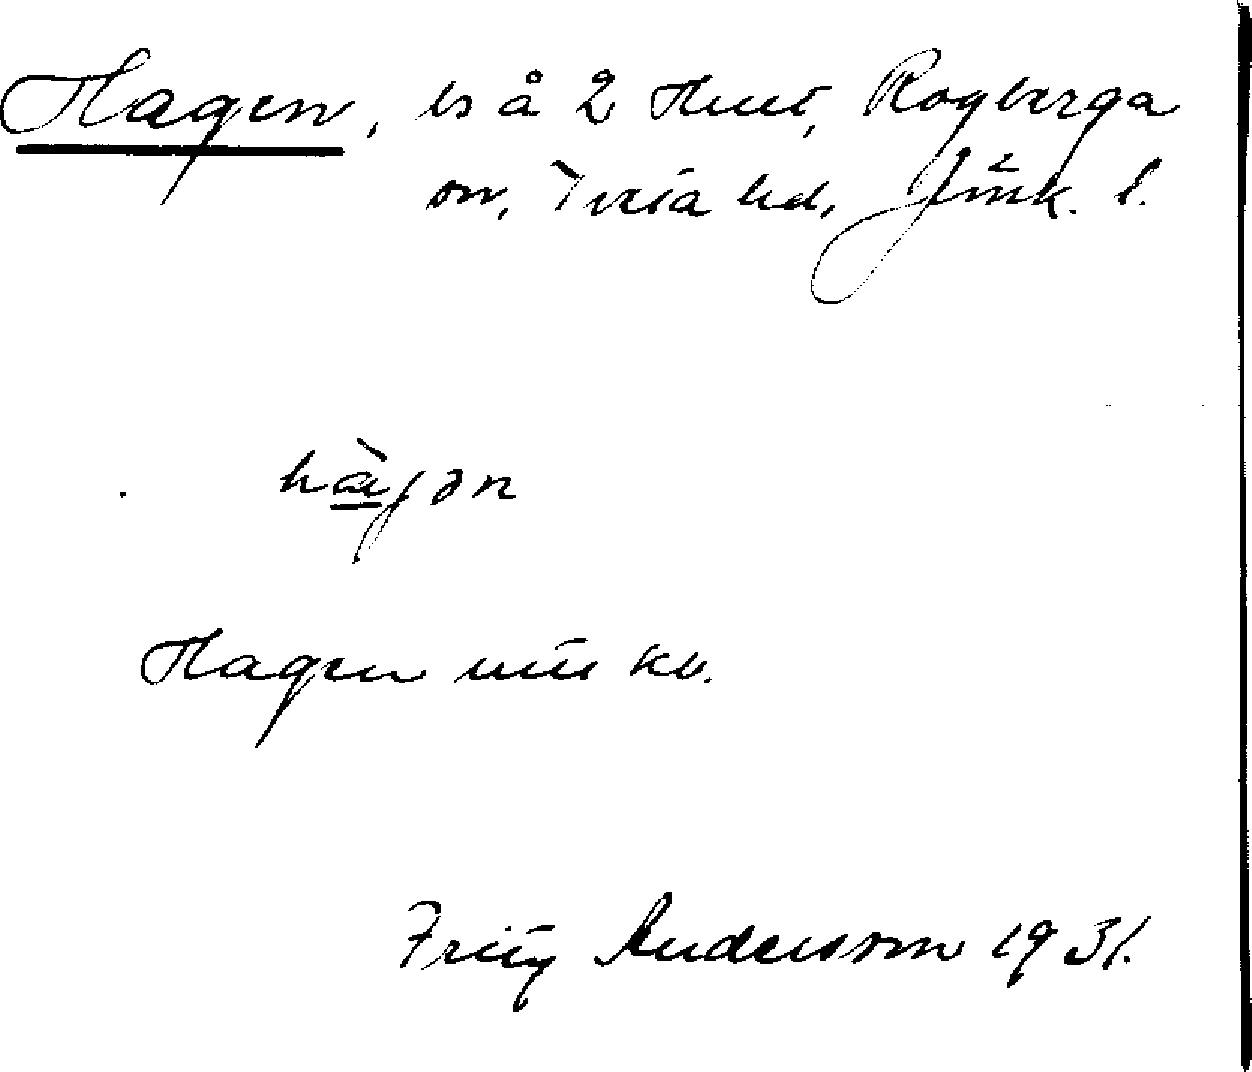 Hagen, ls å 2 Hult, Rogberga
sn, Tveta hd, Jönk. l.
hàgən
Hagen
Fritz Andersson 1931.